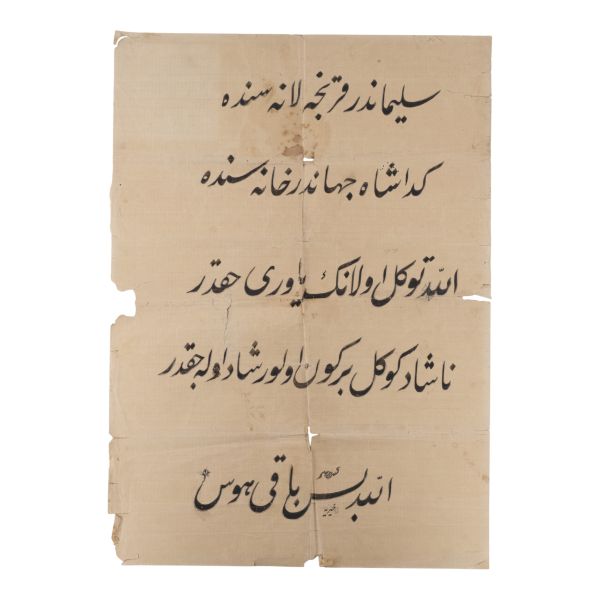 سليماندر قرنجه لانه سنده
كدا شاه جهاندر خانه سنده
اللّه توكل اولانك ياورى حقدر
ناشاد كوكل بر كون اولور شاد اوله جقدر
اللّه بس باقى هوس